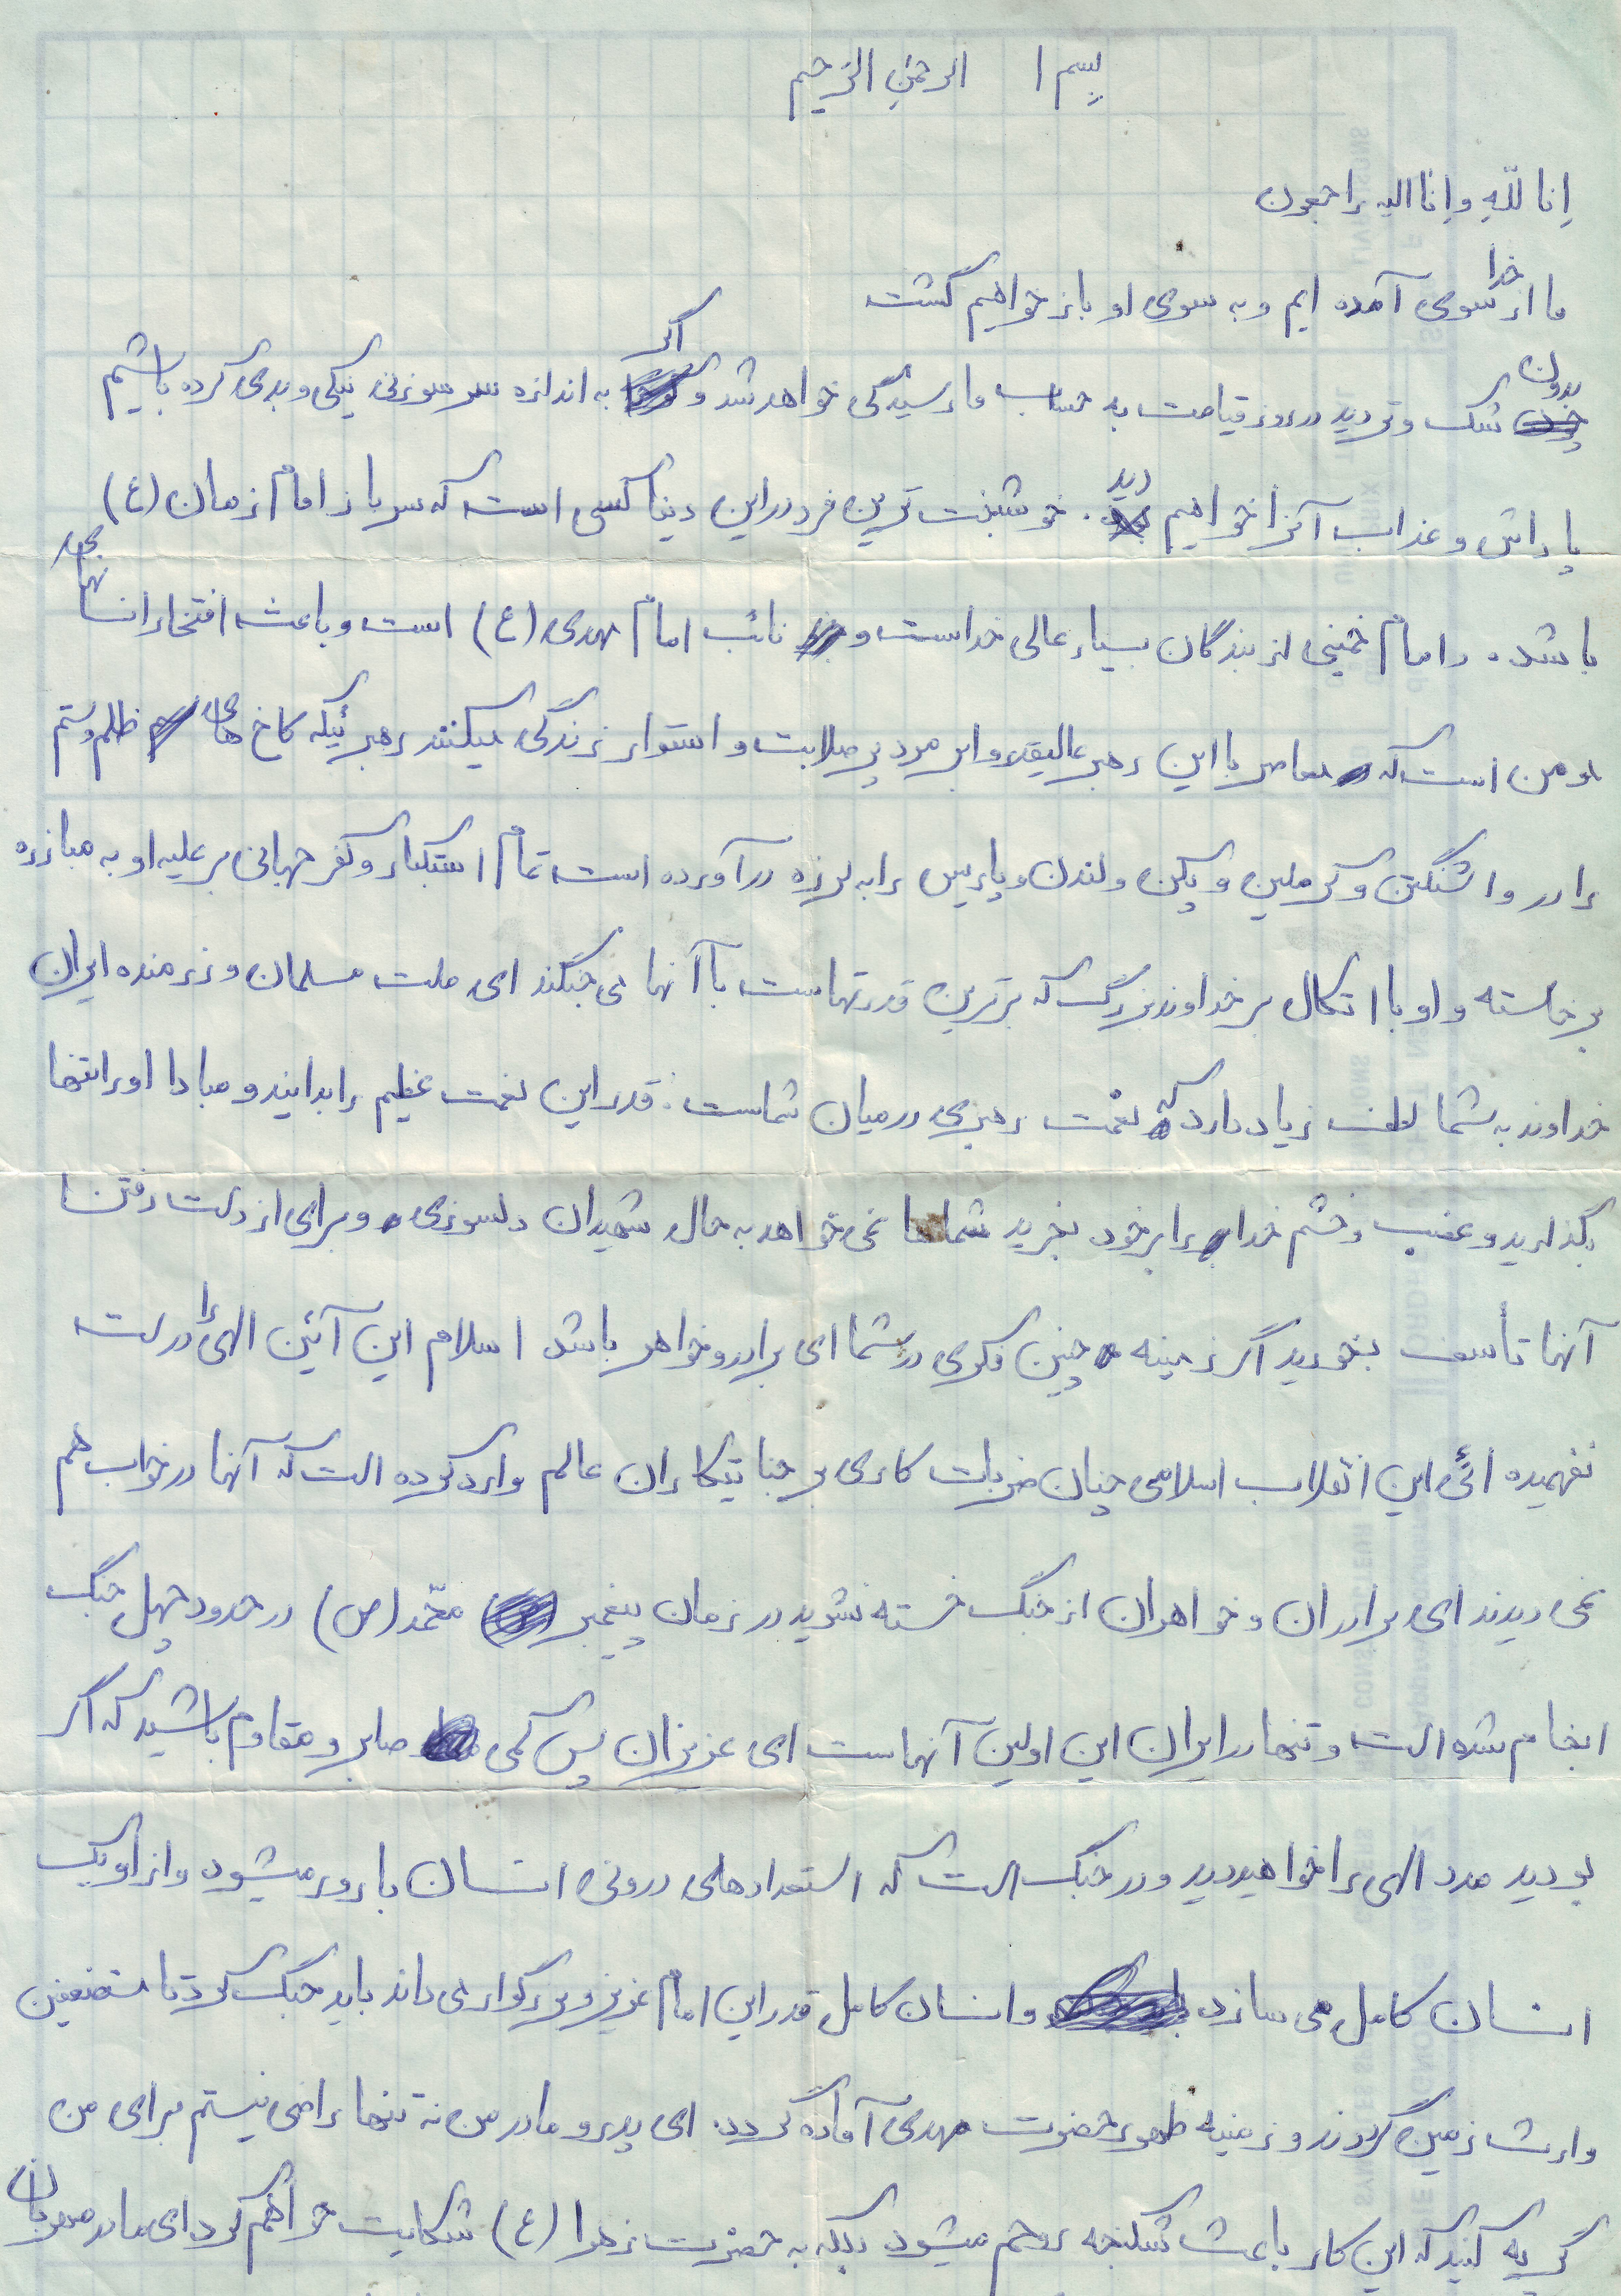 بسم ا الرحمن الرحیم
اِنا للّهِ وِانا الیه راجعون
ما از خدا سوی آمده ایم و به سوی او باز خواهیم گشت
بدون شک و تردید در روز قیامت به حساب ما رسیدگی خواهد شد و اگر به اندازه سر سوزنی نیکی و بدی کرده باشیم
پاداش و عذاب آنرا خواهیم دید. خوشبخت ترین فرد در این دنیا کسی است که سرباز امام زمان (ع)
باشد. و امام خمینی از بندگان بسیار عالی خداست و نائب امام مهدی (ع) است و باعث افتخار انسانهای
و من است که معاصر با این رهبر عالیقدر و ابر مرد پر صلابت و استوار زندگی میکنند رهبرئیکه کاخ های ظلم و ستم
را در واشنگتن و کرملین و پکن و لندن و پاریس را به لرزه در آورده است تمام استکبار و کفر جهانی بر علیه او به مبارزه
برخاسته و او با اتکال بر خداوند بزرگ که برترین قدرتهاست با آنها می جنگند ای ملت مسلمان و رزمنده ایران
خداوند به شما لطف زیاد دارد که نعمت رهبری در میان شماست. قدر این نعمت عظیم را بدانید و مبادا او را تنها
بگذارید و غضب و خشم خدا را بر خود بخرید شماها نمی خواهد به حال شهیدان دلسوزی و برای از دست رفتن
آنها تأسف بخورید اگر زمینه چنین فکری در شما ای برادر و خواهر باشد اسلام این آئین الهی را درست
نفهمیده ائی این انقلاب اسلامی چنان ضربات کاری بر جنایتکاران عالم وارد کرده است که آنها در خواب هم
نمی دیدند ای برادران و خواهران از جنگ خسته نشوید در زمان پیغمبر محمّد (ص) در حدود چهل جنگ
انجام شده است و تنها در ایران این اولین آنهاست ای عزیزان پس کمی صابر و مقاوم باشید که اگر
بودید مدد الهی را خواهید دید و در جنگ است که استعدادهای درونی انسان بارور میشود و از او یک
انسان کامل می سازد و انسان کامل قدر این امام عزیز و بزرگوار می داند باید جنگ کرد تا مستضعفین
وارث زمین گردند و زمینه ظهور حضرت مهدی آماده گردد. ای پدر و مادر من نه تنها راضی نیستم برای من
گریه کنید که این کار باعث شکنجه روحم میشود بلکه به حضرت زهرا (ع) شکایت خواهم کرد ای مادر مهربان